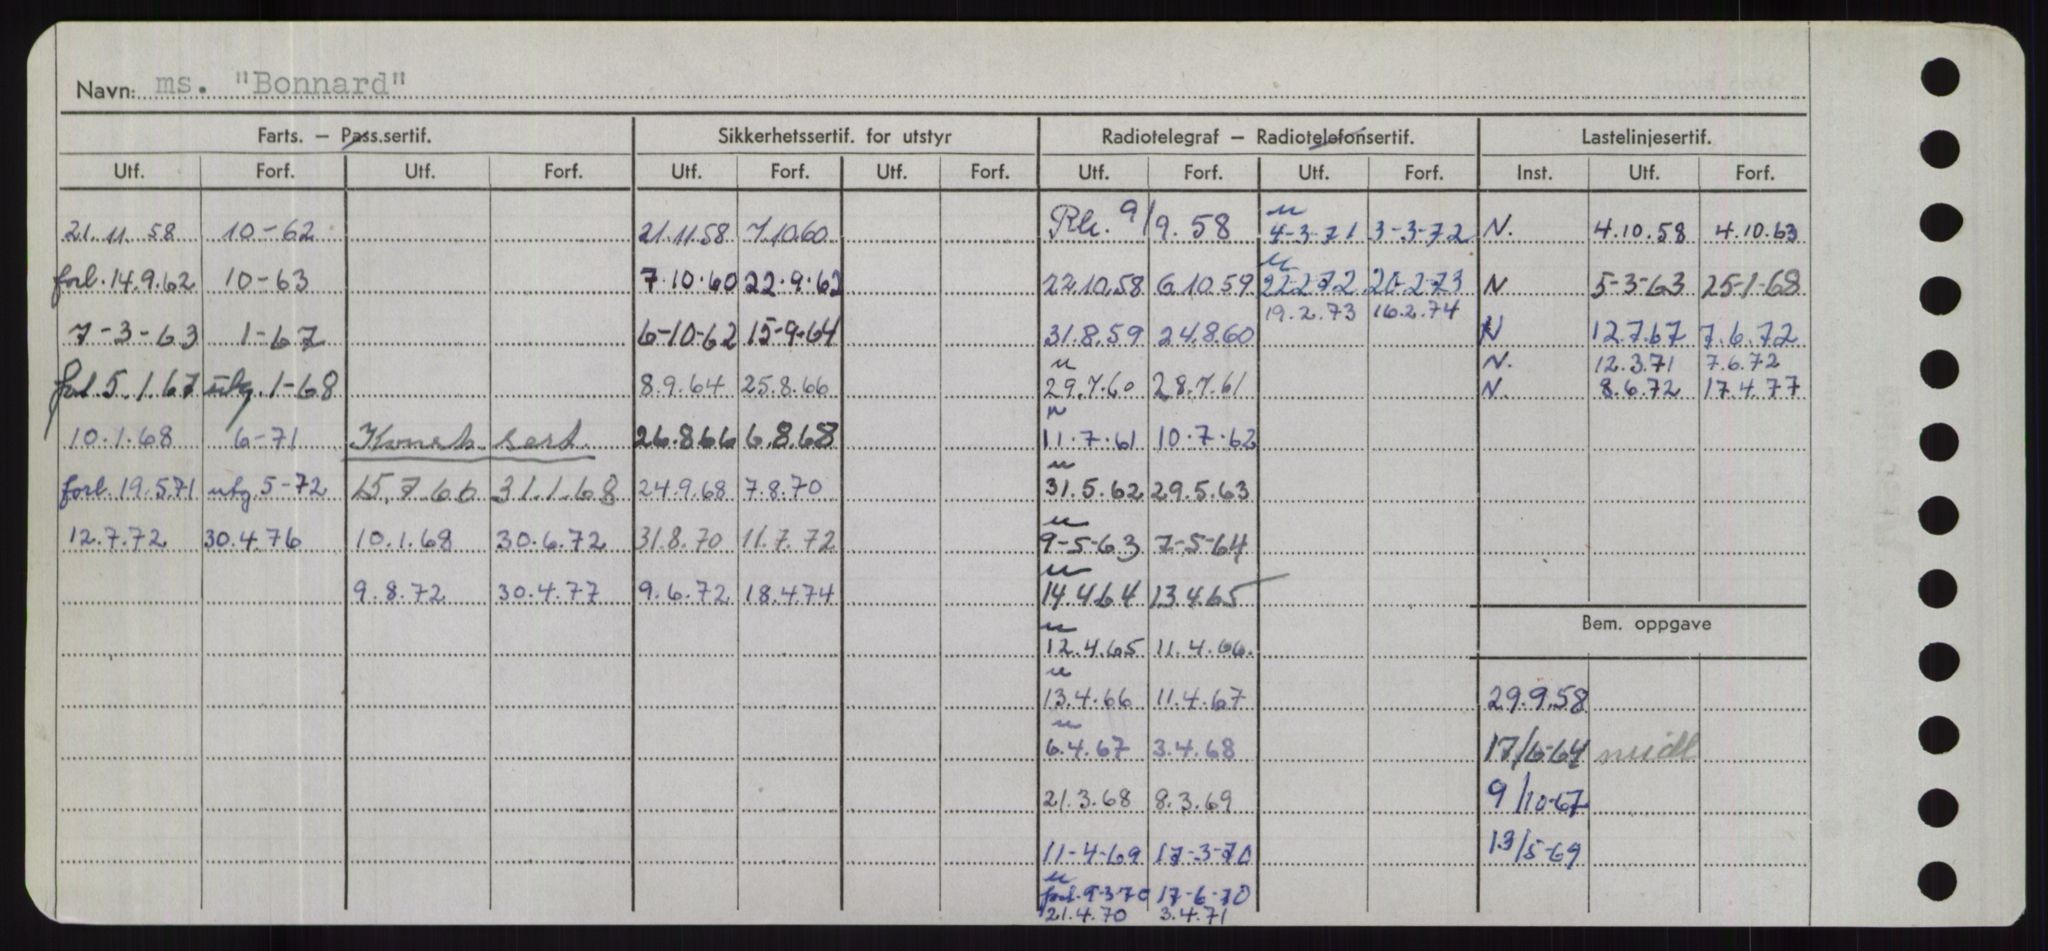 Navn: ms. "Bonnard"
Farts. — Pass.sertif. Sikkerhetssertif. for utstyr Radiotelegraf — Radiotelefonsertif. Lastelinjesertif.
Utf. Forf. Utf. Forf. Utf. Forf. Utf. Forf. Utf. Forf. Utf. Forf. Inst. Utf. Forf.
21.11.58 10-62 21.11.58 7.10.60 9/9.58 4-3-71 3-3-72 N. 4.10.58 4.10.63
forl. 14.9.62 10-63 7.10.60 22.9.62 22.10.58 6.10.59 22-2-72 20-2-73 N 5-3-63 25-1-68
19.2.73 16.2.74
7-3-63 1-67 6-10-62 15-9-64 31.8.59 24.8.60 N 12.7.67 7.6.72
N. 12.3.71 7.6.72
forl. 5.1.67 1-68 8.9.64 25.8.66 29.7.60 28.7.61 N. 8.6.72 17.4.77
10.1.68 6-71 Konstr. sert. 26.8.66 6.8.68 11.7.61 10.7.62
forl. 19.5.71 utg 5-72 15.7.66 31.1.68 24.9.68 7.8.70 31.5.62 29.5.63
12.7.72 30.4.76 10.1.68 30.6.72 31.8.70 11.7.72 9-5-63 7-5-64
9.8.72 30.4.77 9.6.72 18.4.74 14.4.64 13.4.65
Bem. oppgave
12.4.65 11.4.66.
13.4.66 11.4.67 29.9.58
6.4.67 3.4.68 17/6-64 midl
21.3.68 8.3.69 9/10-67
11-4-69 17-3-70 13/5-69
forl. 9-3-70 17-6-70
21.4.70 3.4.71